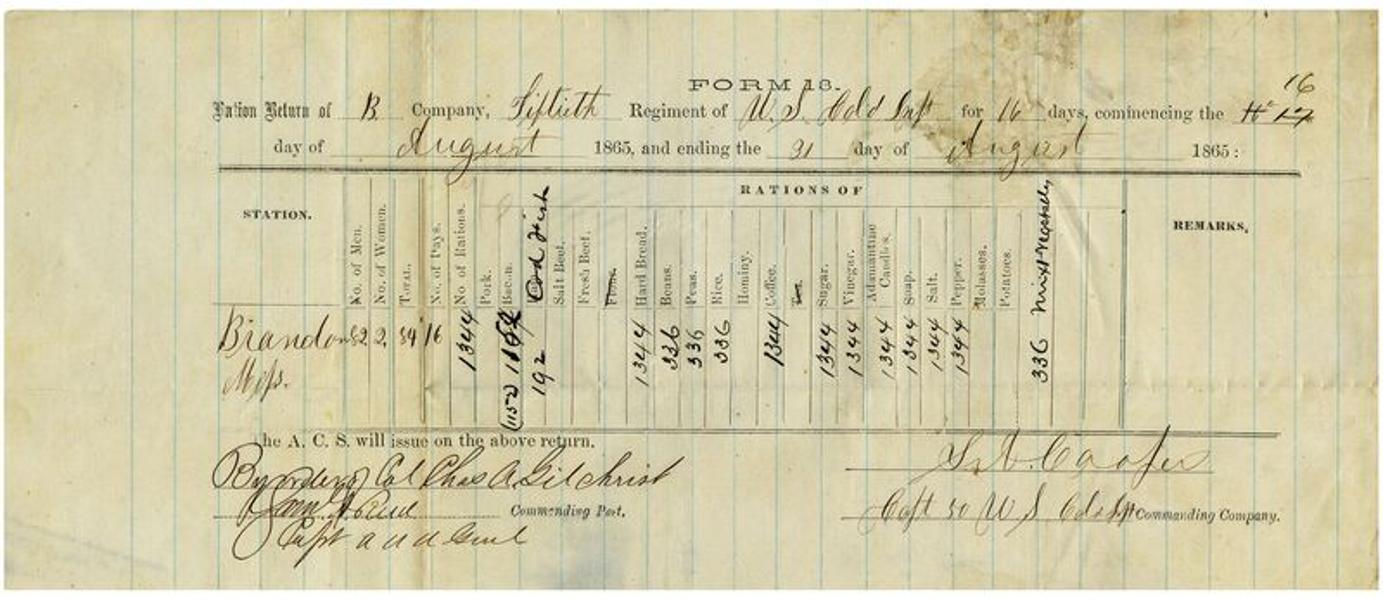 FORM 13.
16
Ration Return of B Company, Fiftieth Regiment of U. S. Cold Inft for 16 days, commencing the
day of August 1865, and ending the 31 day of August 1865:
RATIONS OF
STATION.
No. of Men.
No. of Women.
TOTAL.
No. of Days.
No of Rations.
Pork.
Bacon.
Cod Fish
Salt Beef.
Fresh Beef.
Flour.
Hard Bread.
Beans.
Peas.
Rice.
Hominy.
Coffee.
Tea.
Sugar.
Vinegar.
Adamantine Candles.
Soap.
Salt.
Pepper.
Molasses.
Potatoes.
Mixt Vegetables
REMARKS,
Brandon 82 2 84 16 1344 (1152) 192 1344 336 336 336 1344 1344 1344 1344 1344 1344 1344 336
Miss.
he A. C. S. will issue on the above return.
By order of Col Chas A Gilchrist
Commanding Post.
Capt a a a Genl
Cooper
Capt 50 U S Cold Inft Commanding Company.